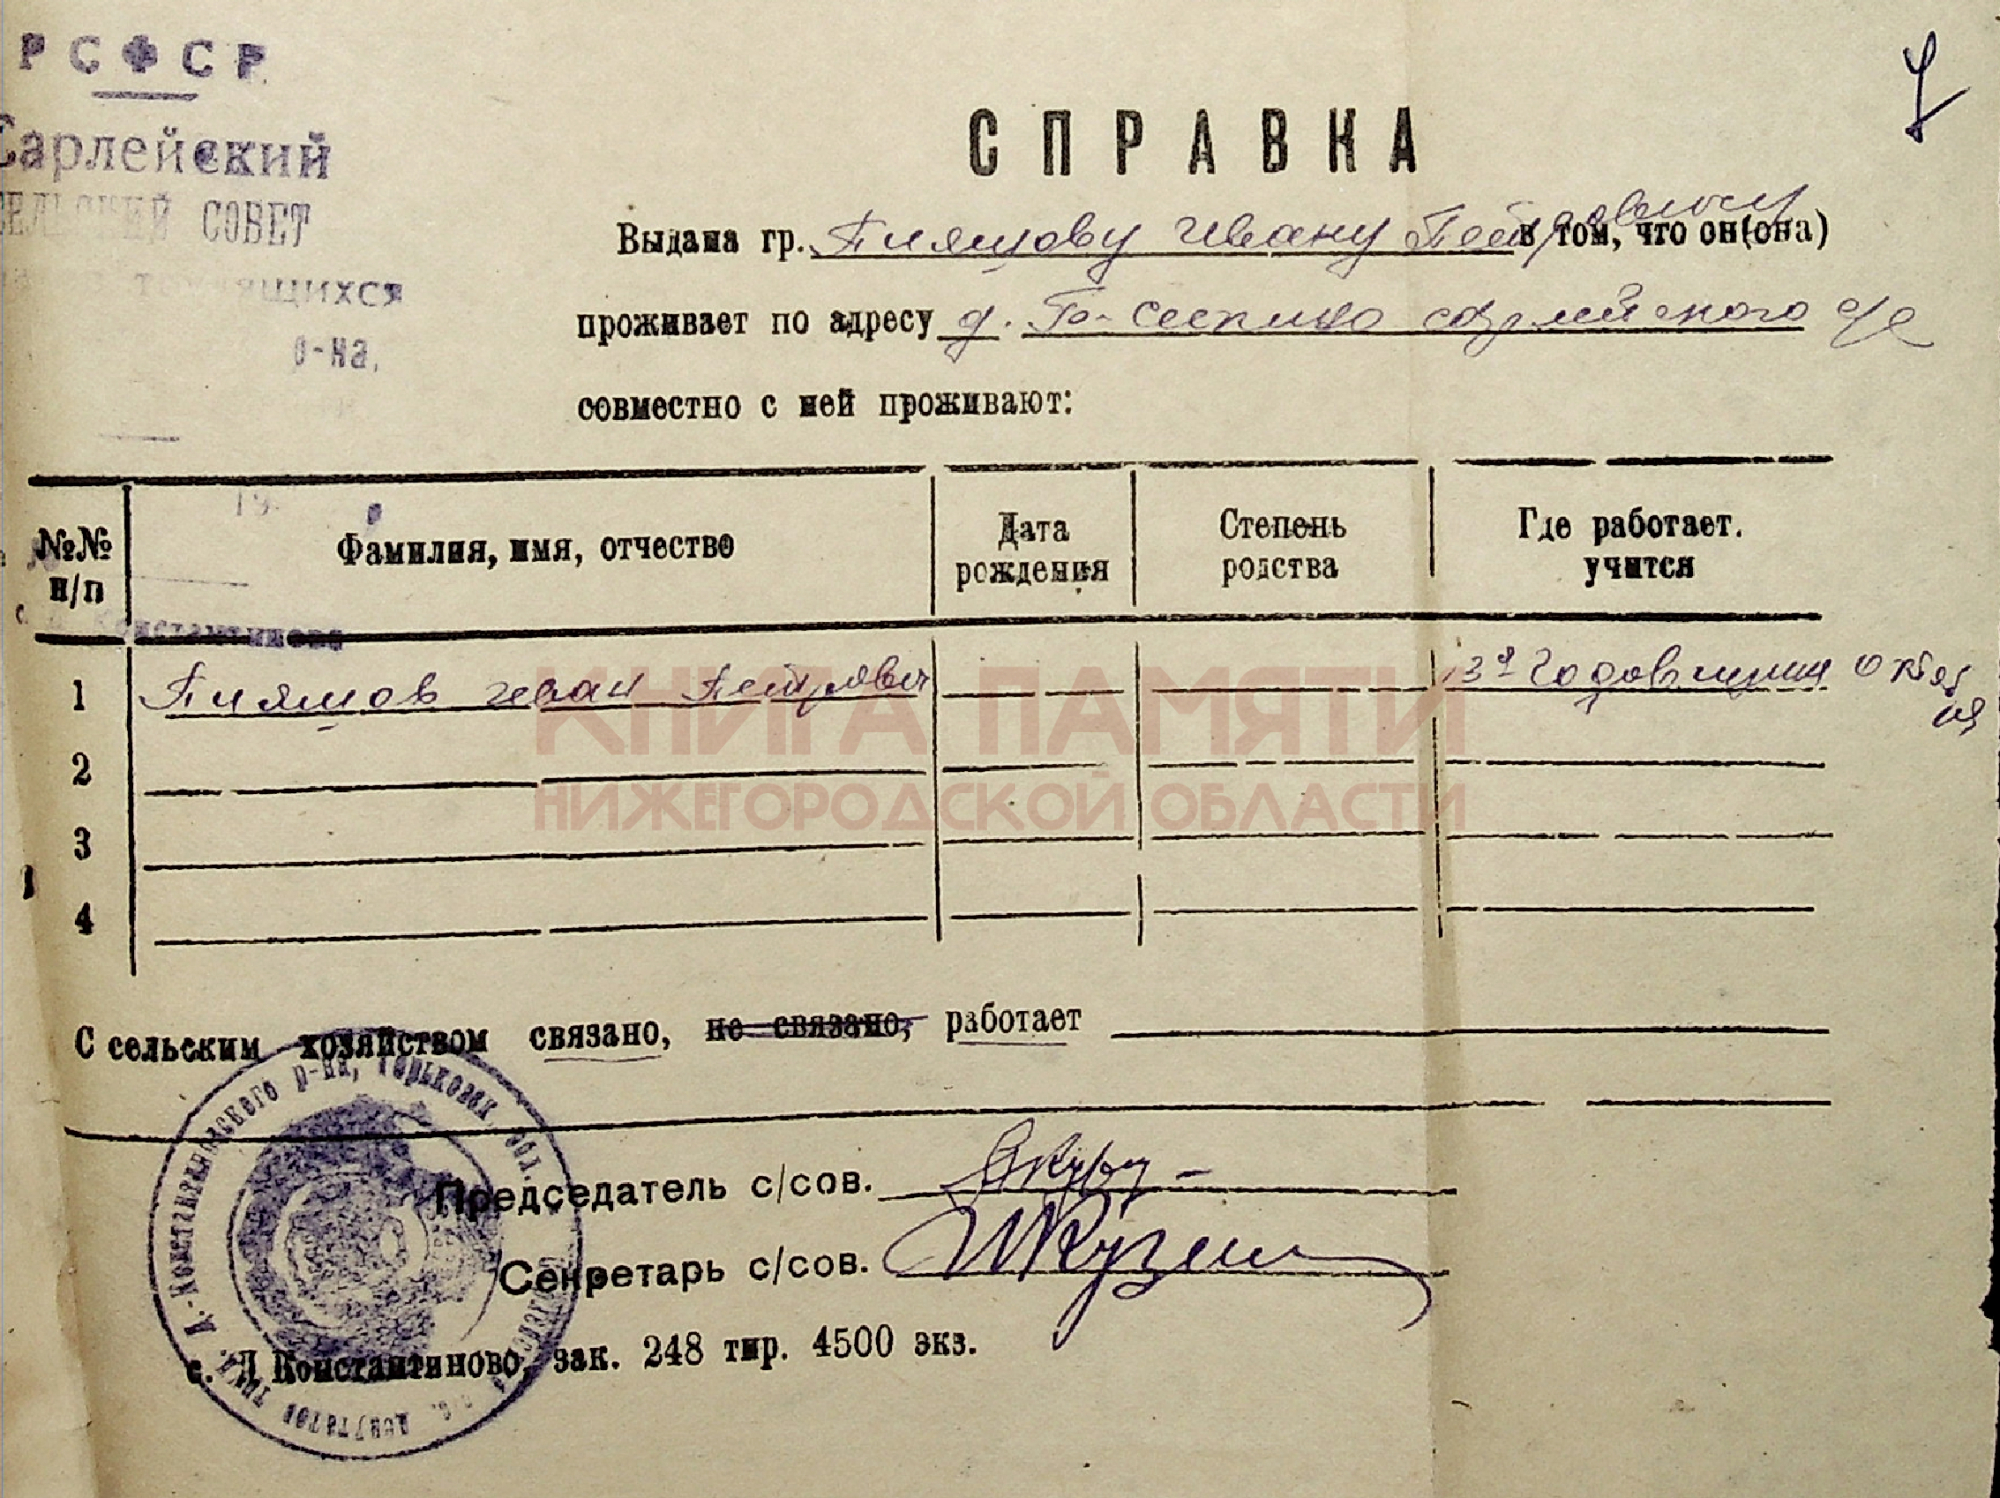 РСФСР
Сарлейский
СЕЛЬСКИЙ СОВЕТ
трудящихся
р-на,
19
с. Д Константиново
СПРАВКА
Выдана гр. Пияшову Ивану Петровичу в том, что он(она)
проживает по адресу д. сарлейского с/с
совместно с ней проживают:
№№ н/п
Фамилия, имя, отчество
Дата рождения
Степень родства
Где работает. учится
1 Пияшов Иван Петрович 13я Годовщина Октября
2
3
4
С сельским хозяйством связано, не связано, работает
Председатель с/сов.
Секретарь с/сов.
с. Д Константиново, зак. 248 тир. 4500 экз.
Д.-Константиновского р-на, Горьковск. обл.
КНИГА ПАМЯТИ
НИЖЕГОРОДСКОЙ ОБЛАСТИ